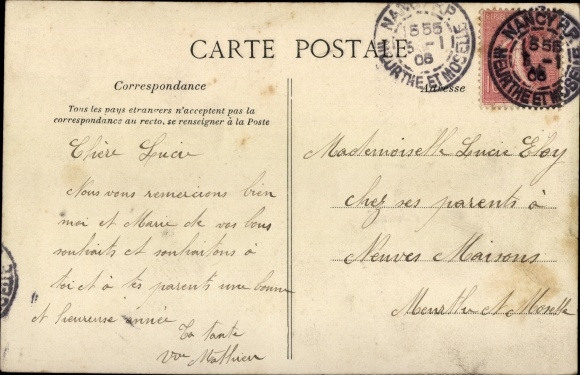 CARTE POSTALE
NANCY R.P.
15 55
5 -1
06
MEURTHE ET MOSELLE
NANCY R.P.
15 55
5 -1
06
MEURTHE ET MOSELLE
Correspondance
Tous les pays etrangers n'acceptent pas la
correspondance au recto, se renseigner à la Poste
Adresse
Chère Lucie
Nous vous remercions bien
moi et Marie de vos bons
souhaits et souhaitons à
toi et à tes parents une bonne
et heureuse année
Ta tante
Vve Mathieu
Mademoiselle Lucie Eloy
chez ses parents à
Neuves Maisons
Meurthe et Moselle